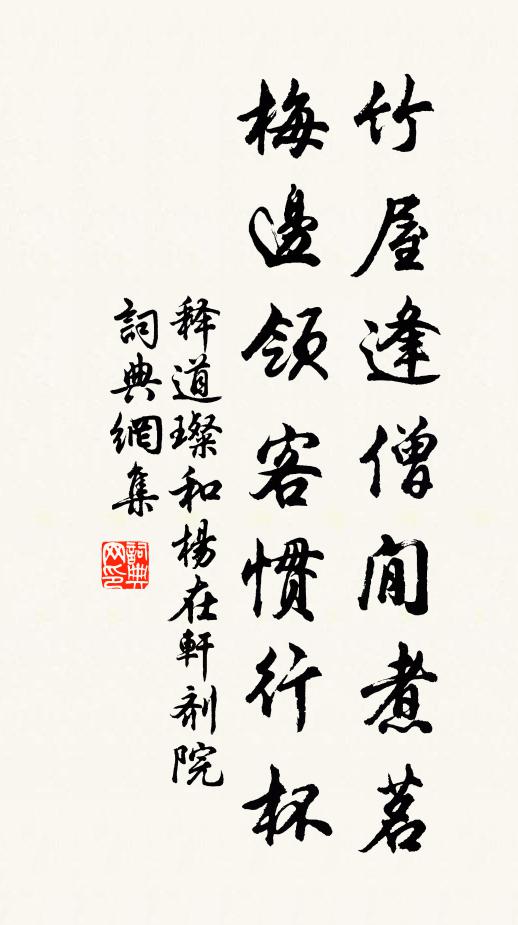 竹屋逢僧閒煮茗
梅邊領客慣行杯
释道璨和楊在軒制院
詞典網集
詞典网印